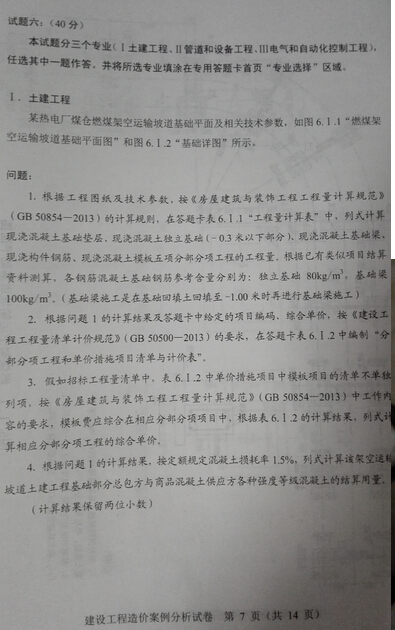 试题六:(40分)
本试题分三个专业(Ⅰ土建工程、Ⅱ管道和设备工程、Ⅲ电气和自动化控制工程),
任选其中一题作答。并将所选专业填涂在专用答题卡首页“专业选择”区域。
Ⅰ.土建工程
某热电厂煤仓燃煤架空运输坡道基础平面及相关技术参数,如图6.Ⅰ.1“燃煤架
空运输坡道基础平面图”和图6.Ⅰ.2“基础详图”所示。
问题:
1.根据工程图纸及技术参数,按《房屋建筑与装饰工程工程量计算规范》
(GB 50854—2013)的计算规则,在答题卡表6.Ⅰ.1“工程量计算表”中,列式计算
现浇混凝土基础垫层、现浇混凝土独立基础(-0.3米以下部分)、现浇混凝土基础梁、
现浇构件钢筋、现浇混凝土模板五项分部分项工程的工程量。根据已有类似项目结算
资料测算,各钢筋混凝土基础钢筋参考含量分别为:独立基础 80kg/m³,基础梁
100kg/m³。(基础梁施工是在基础回填土回填至-1.00米时再进行基础梁施工)
2.根据问题1的计算结果及答题卡中给定的项目编码、综合单价,按《建设工
程工程量清单计价规范》(GB 50500—2013)的要求,在答题卡表6.Ⅰ.2中编制“分
部分项工程和单价措施项目清单与计价表”。
3.假如招标工程量清单中,表6.Ⅰ.2中单价措施项目中模板项目的清单不单独
列项,按《房屋建筑与装饰工程工程量计算规范》(GB 50854—2013)中工作内
容的要求,模板费应综合在相应分部分项项目中,根据表6.Ⅰ.2的计算结果,列式计
算相应分部分项工程的综合单价。
4.根据问题1的计算结果,按定额规定混凝土损耗率1.5%,列式计算该架空运输
坡道土建工程基础部分总包方与商品混凝土供应方各种强度等级混凝土的结算用量。
(计算结果保留两位小数)
建设工程造价案例分析试卷 第 7 页(共 14 页)